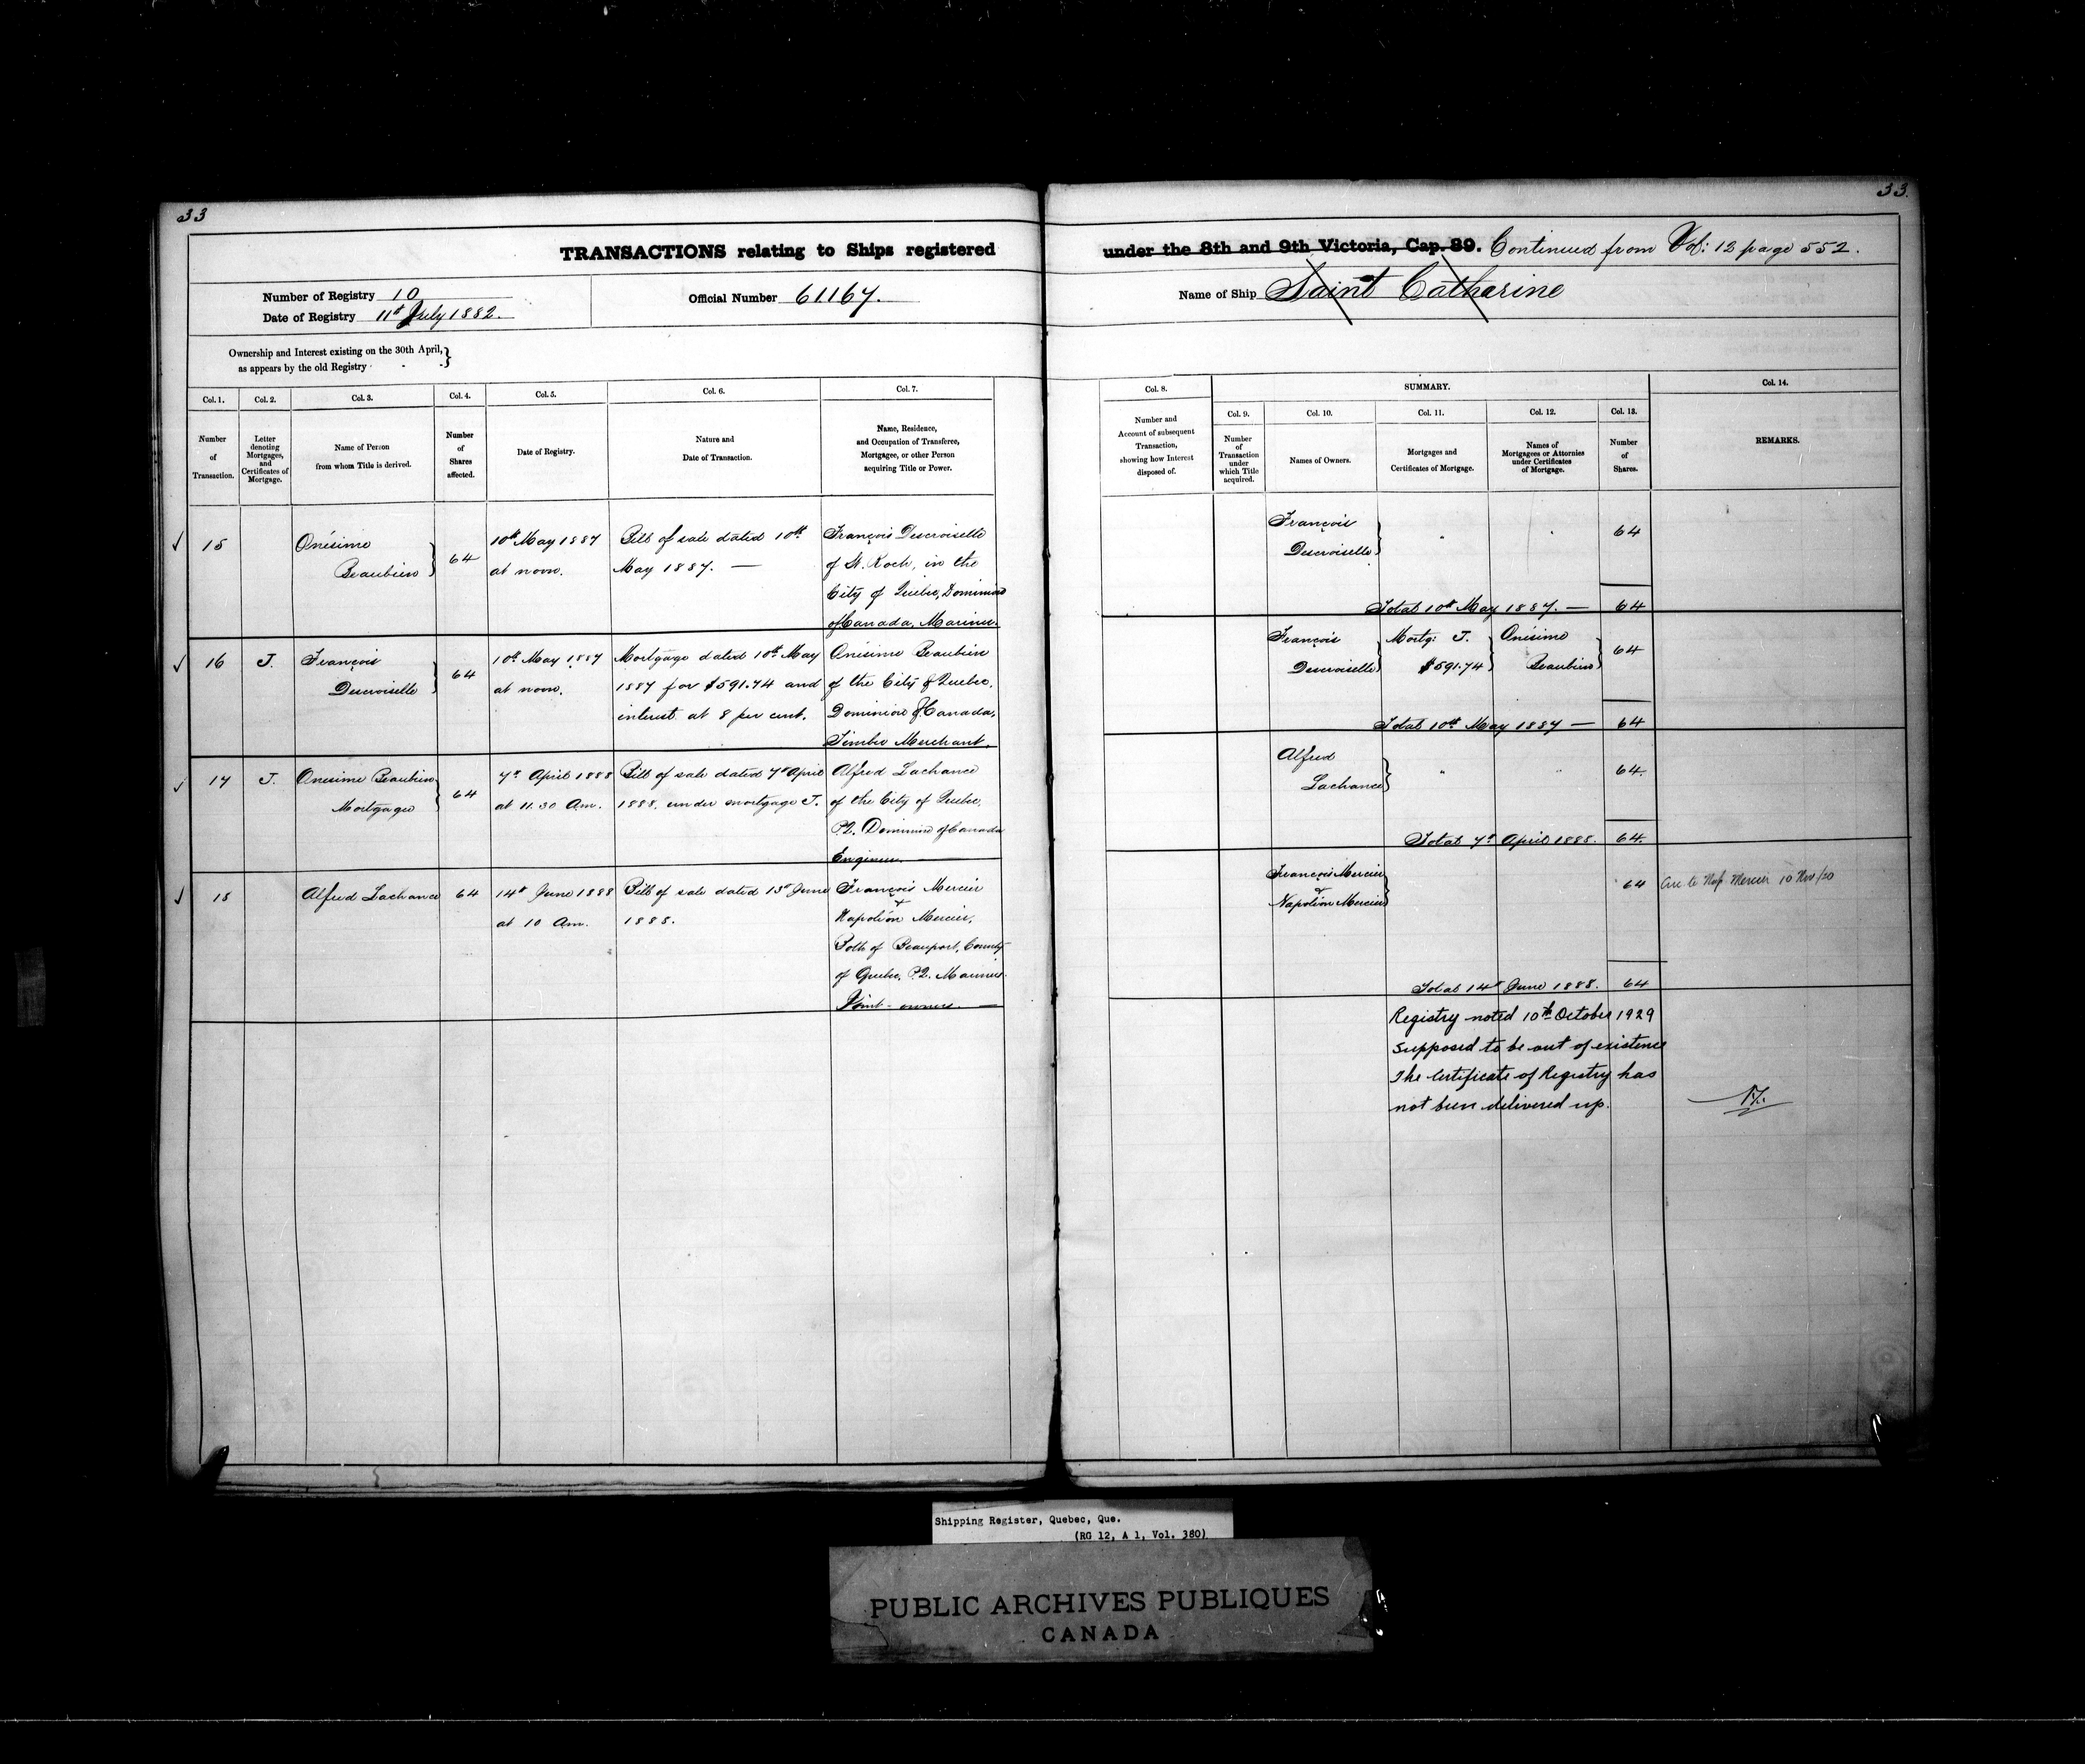 33
33.
TRANSACTIONS relating to Ships registered under the 8th and 9th Victoria, Cap. 89. Continued from Vol: 12 page 552.
Number of Registry 10
Date of Registry 11th July 1882.
Official Number 61167.
Name of Ship Saint Catharine
Ownership and Interest existing on the 30th April,
as appears by the old Registry
Col. 1.
Number
of
Transaction.
Col. 2.
Letter
denoting
Mortgages,
and
Certificates of
Mortgage.
Col. 3.
Name of Person
from whom Title is derived.
Col. 4.
Number
of
Shares
affected.
Col. 5.
Date of Registry.
Col. 6.
Nature and
Date of Transaction.
Col. 7.
Name, Residence,
and Occupation of Transferee,
Mortgagee, or other Person
acquiring Title or Power.
Col. 8.
Number and
Account of subsequent
Transaction,
showing how Interest
disposed of.
SUMMARY.
Col. 9.
Number
of
Transaction
under
which Title
acquired.
Col. 10.
Names of Owners.
Col. 11.
Mortgages and
Certificates of Mortgage.
Col. 12.
Names of
Mortgagees or Attornies
under Certificates
of Mortgage.
Col. 13.
Number
of
Shares.
Col. 14.
REMARKS.
15
Onésime
Beaubien
64
10th May 1887
at noon.
Bill of sale dated 10th
May 1887. —
François Descroiselle
of St. Roch, in the
City of Quebec, Dominion
of Canada, Mariner.
François
Descroiselle
64
Total 10th May 1887. — 64
16
J.
François
Descroiselle
64
10th May 1887
at noon.
Mortgage dated 10th May
1887 for $591.74 and
interest at 8 per cent.
Onésime Beaubien
of the City of Quebec,
Dominion of Canada,
Timber Merchant.
François
Descroiselle
Mortg: J.
$591.74
Onésime
Beaubien
64
Total 10th May 1887 — 64
17
J.
Onesime Beaubien
Mortgagee
64
7th April 1888
at 11.30 Am.
Bill of sale dated 7th April
1888. under mortgage J.
Alfred Lachance
of the City of Quebec,
P.Q. Dominion of Canada
Engineer. —
Alfred
Lachance
64.
Total 7th April 1888. 64.
18
Alfred Lachance
64
14th June 1888
at 10 Am.
Bill of sale dated 13th June
1888.
François Mercier
+
Napoléon Mercier,
Both of Beauport, County
of Quebec, P.Q. Mariners.
Joint-owners. —
François Mercier
+
Napoléon Mercier
64
Nap Mercier 10 Nov/20
Total 14th June 1888. 64
Registry noted 10th October 1929
Supposed to be out of existence
The Certificate of Registry has
not been delivered up.
Shipping Register, Quebec, Que.
(RG 12, A 1, Vol. 380)
PUBLIC ARCHIVES PUBLIQUES
CANADA